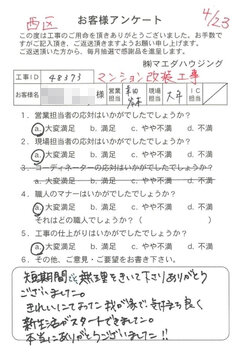 西区
4/23
お客様アンケート
この度は工事のご用命を頂きありがとうございました。お手数で
すがご記入頂き、ご返送頂きますようお願い申し上げます。
ご返送頂いた方から、毎月抽選で感謝品を進呈します。
㈱マエダハウジング
工事ID 48373 マンション改装工事
お客様名 営業担当 現場担当
1. 営業担当者の応対はいかがでしたでしょうか?
a.大変満足 b.満足 c.やや不満 d.不満
2. 現場担当者の応対はいかがでしたでしょうか?
a.大変満足 b.満足 c.やや不満 d.不満
3. コーディネーターの応対はいかがでしたでしょうか?
a.大変満足 b.満足 c.やや不満 d.不満
4. 職人のマナーはいかがでしたでしょうか?
a.大変満足 b.満足 c.やや不満 d.不満
それはどの職人でしょうか?( )
5. 工事の仕上がりはいかがでしたでしょうか?
a.大変満足 b.満足 c.やや不満 d.不満
6. その他、ご意見・ご要望をお書き下さい。
短期間に無理をきいて下さりありがとう
ございました。
きれいになった我が家で気持ち良く
新生活がスタートできました。
本当にありがとうございました!!